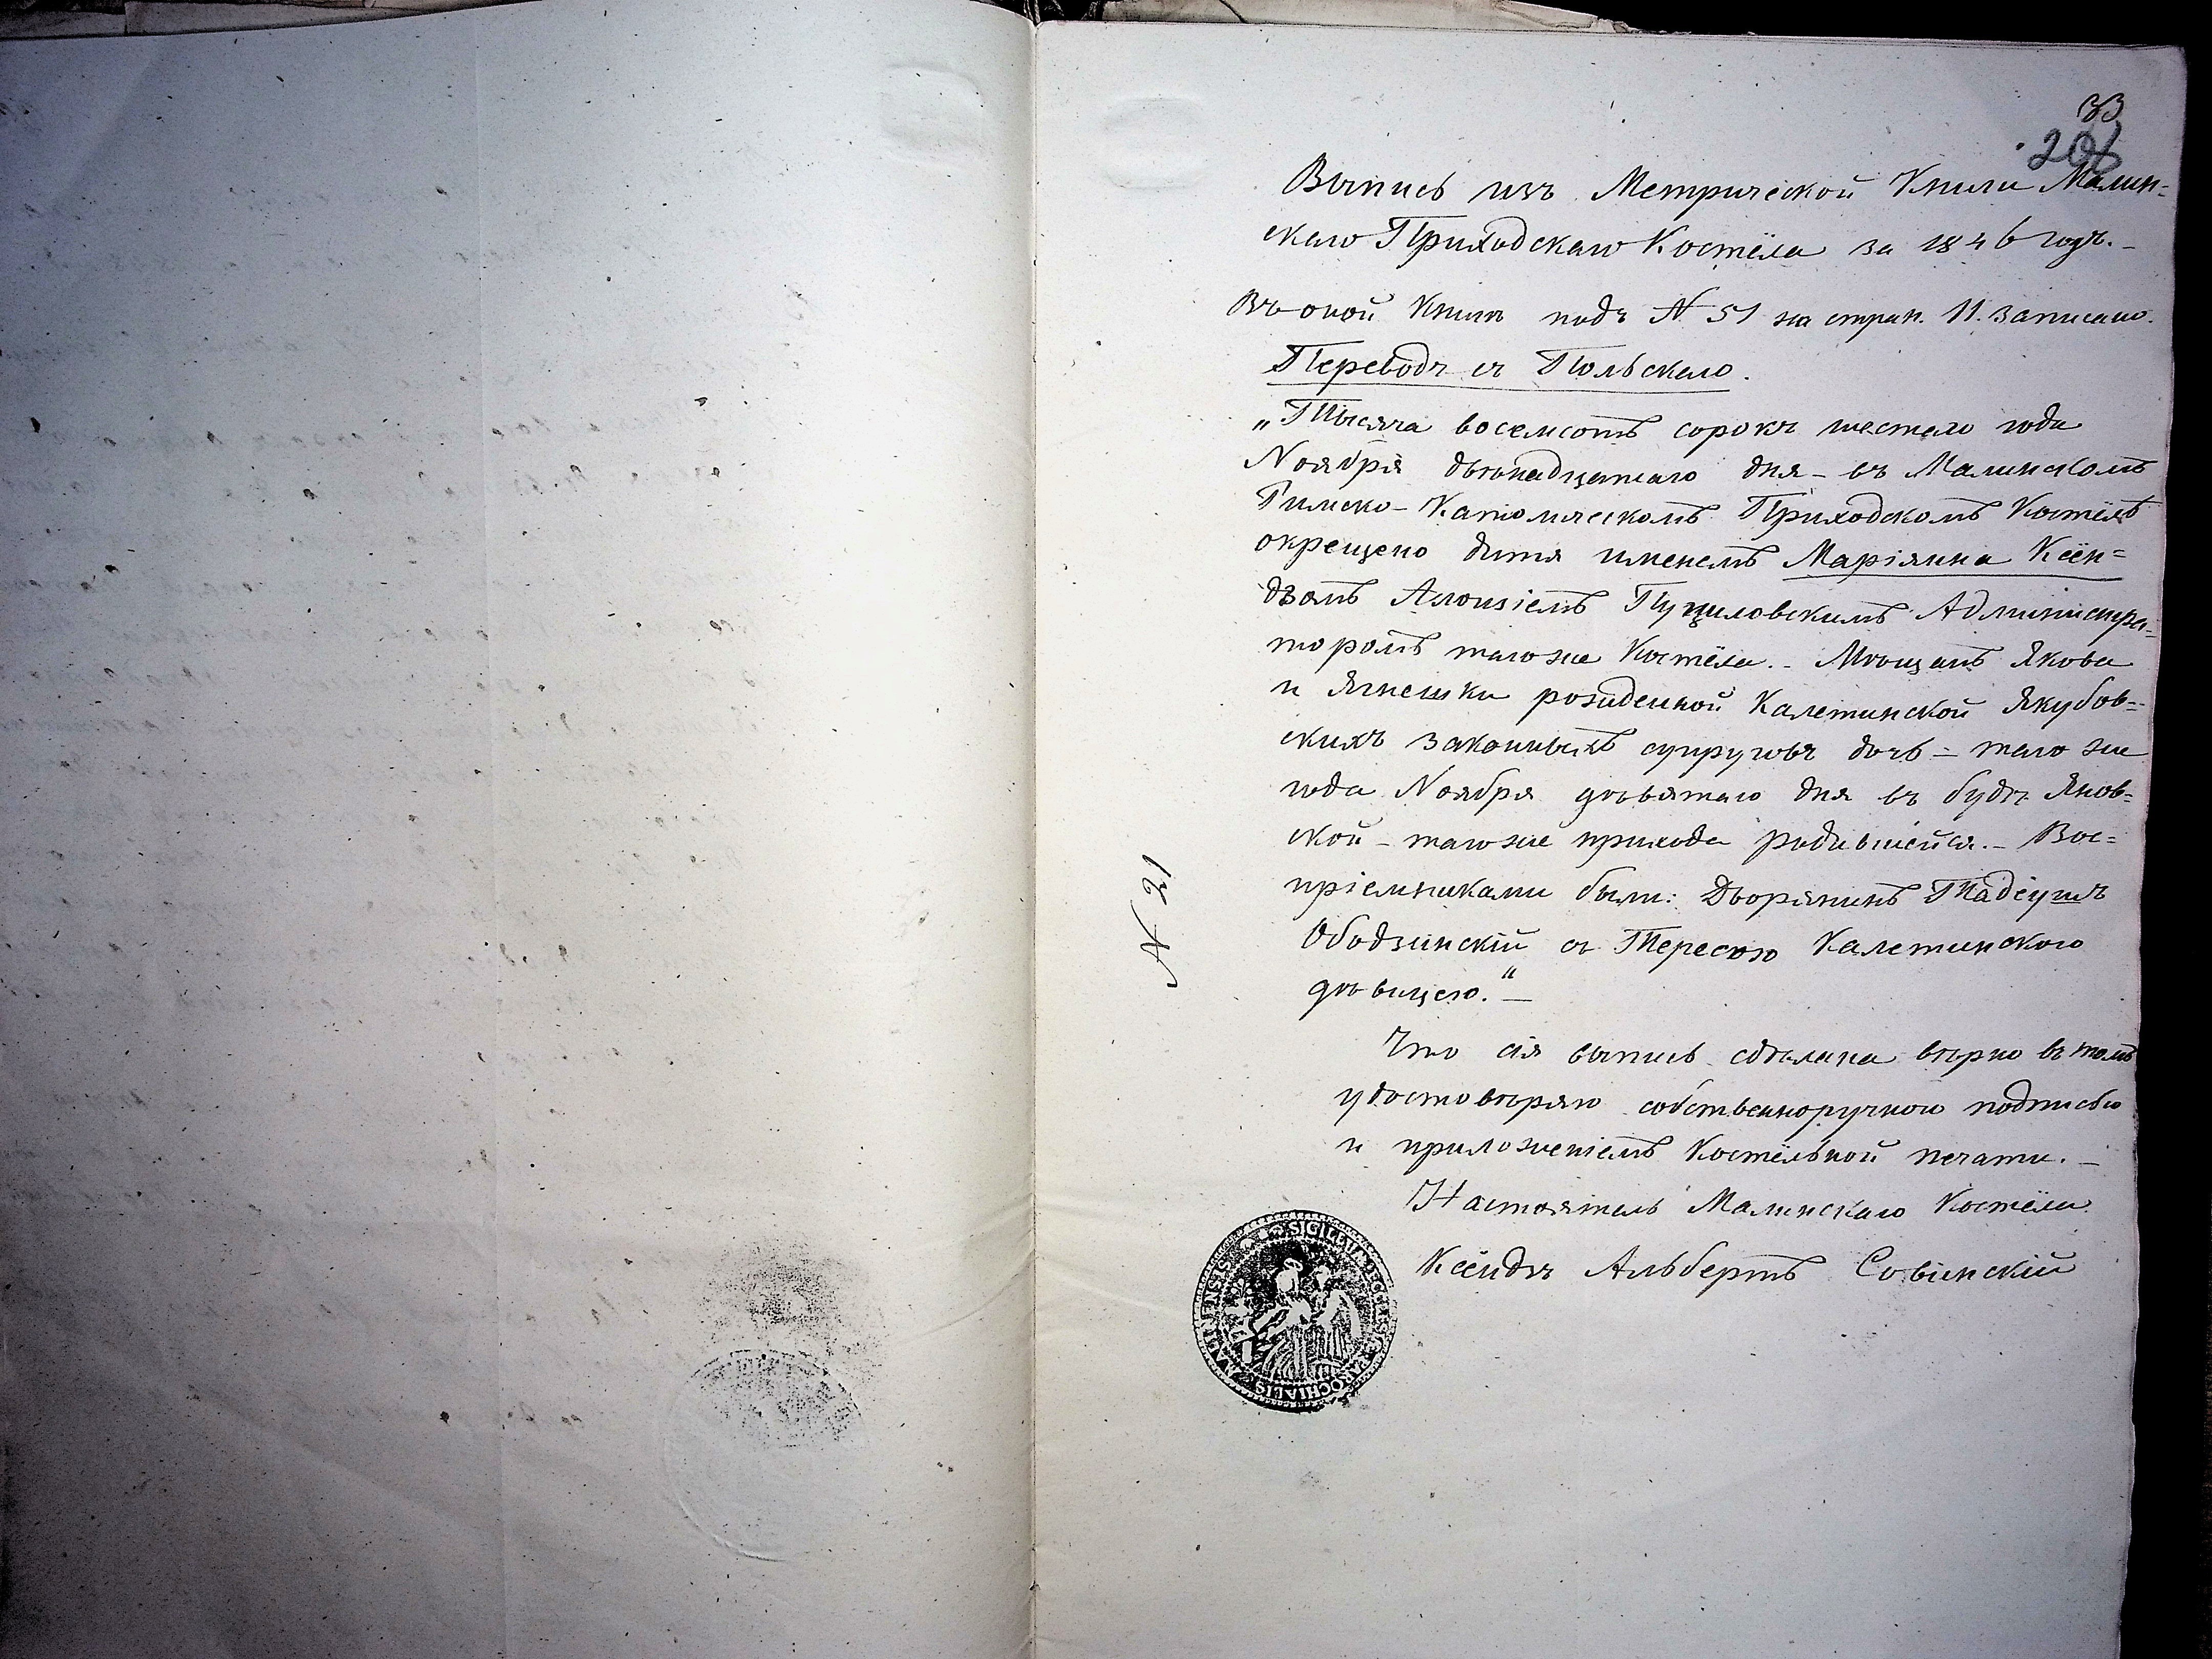 33
206
Выпись изъ Метрической Книги Малин=
скаго Приходскаго Костёла за 1846 годъ.
Въ оной Книгѣ подъ N 51 на стран. 11. записано.
Переводъ съ Польскаго.
„Тысяча восемсотъ сорокъ шестаго года
Ноября двѣнадцатаго дня - въ Малинскомъ
Римско-Католическомъ Приходскомъ Костёлѣ
окрещено дитя именемъ Маріянна Ксён=
дзомъ Алоизіемъ Пуциловскимъ Администра=
торомъ тогоже Костёла. - Мѣщанъ Якова
и Ягнешки рожденной Калетинской Якубов=
скихъ законныхъ супруговъ дочь - того же
года Ноября девятаго дня въ будѣ Янов=
ской - тогоже прихода родившейся. - Вос=
пріемниками были: Дворянинъ Тадеушъ
Ободзинскій съ Тересою Калетинскою
дѣвицею." -
Что сія выпись сдѣлана вѣрно въ томъ
удостовѣряю собственноручною подписью
и приложеніемъ Костёльной печати. -
Настоятель Малинскаго Костёла
Ксёндзъ Альбертъ Совинскій
N 21
SIGILLUM ECCLESIÆ PAROCHIALIS MALINENSIS